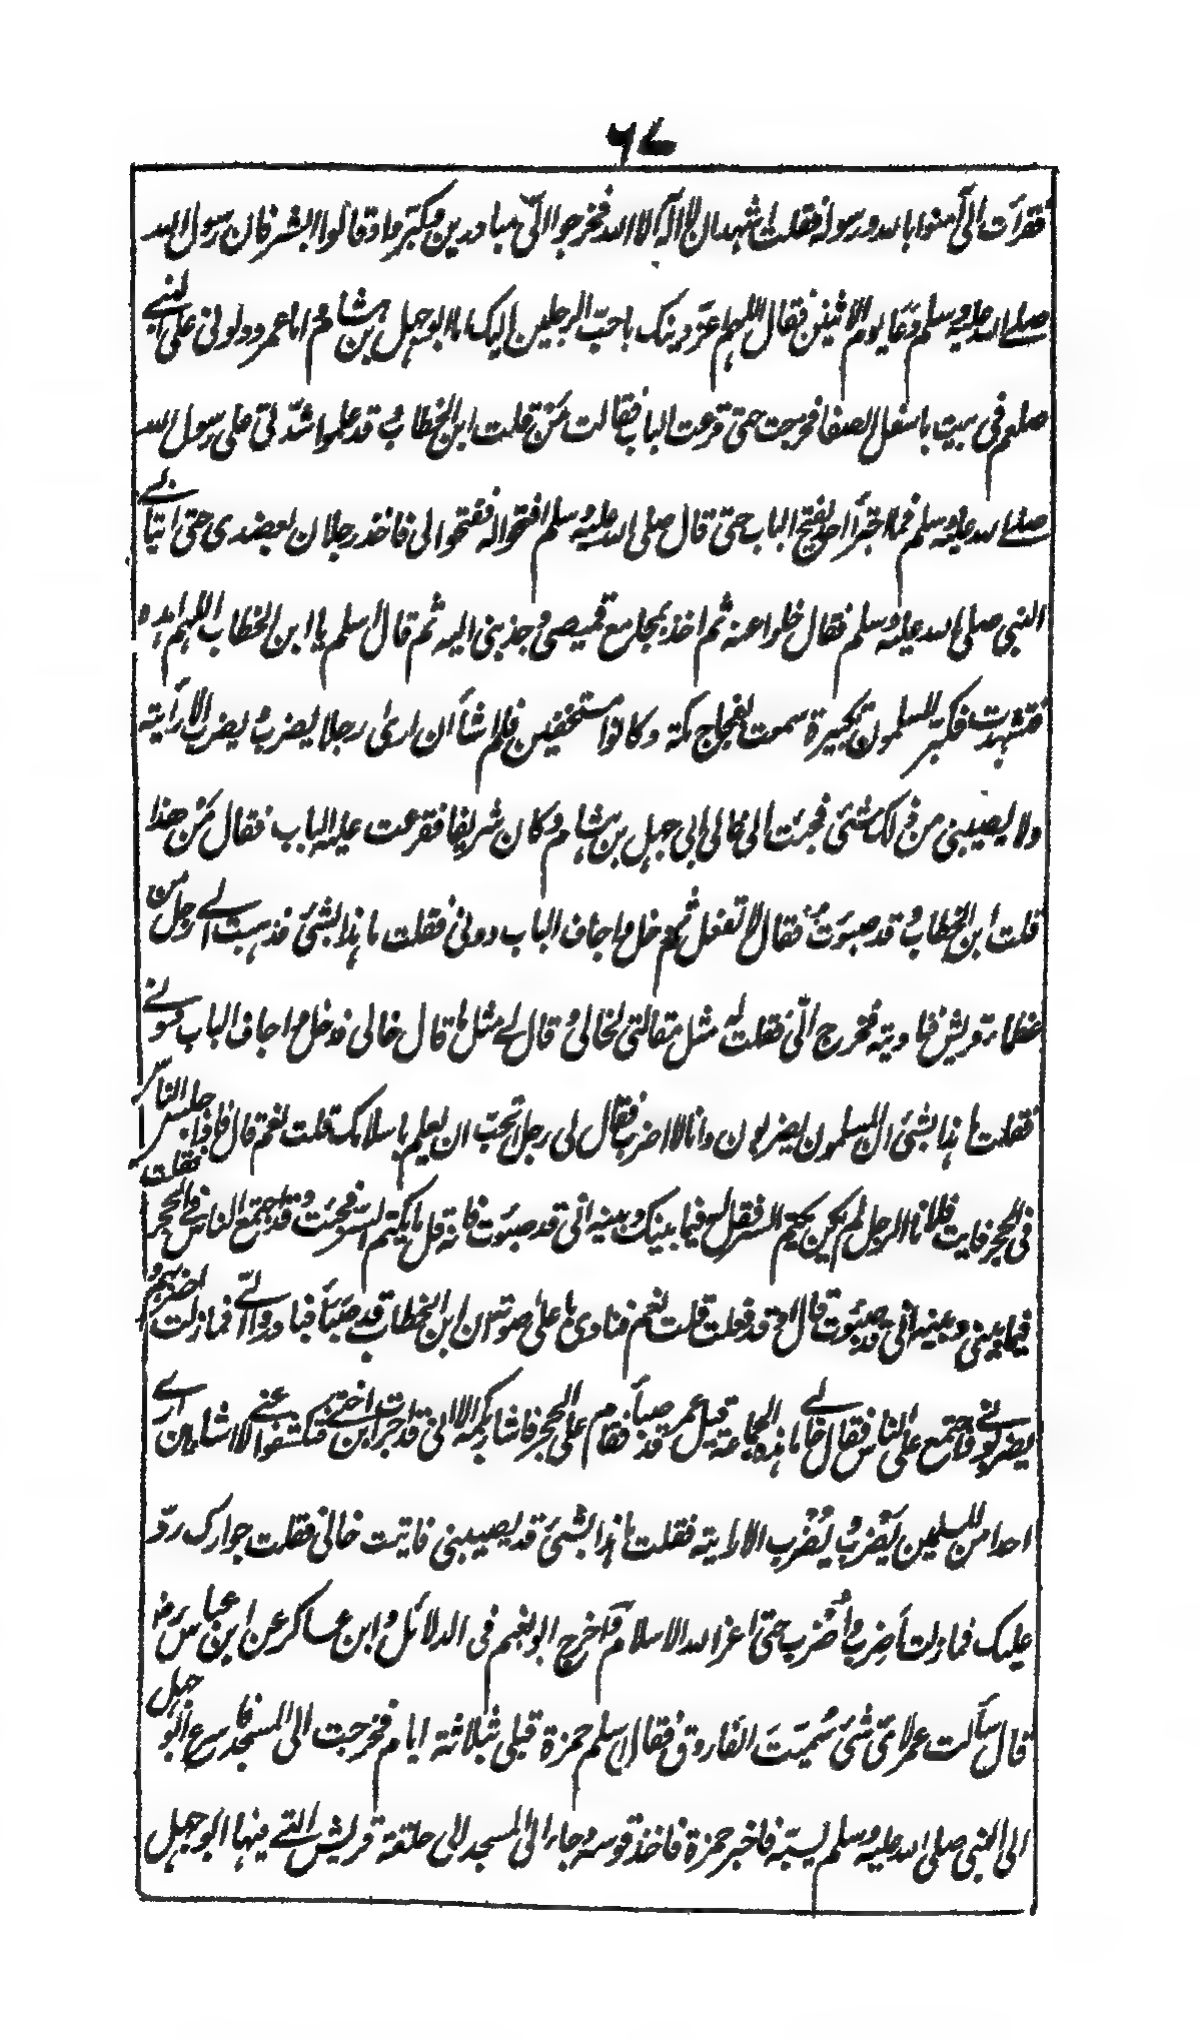 ٦٧
فقرأت الى آمنوا بالله ورسوله فقلت اشهد ان لا اله الا الله فخرجوا الىّ مبادرين وكبّروا وقالوا ابشر فان رسول الله
صلى الله عليه وسلم دعا يوم الاثنين فقال اللهم اعز دينك باحبّ الرجلين اليك اما ابو جهل بن هشام واما عمر ودلونى على النبي
صلعم فى بيت باسفل الصفا فخرجت حتى قرعت الباب فقالت مَنْ قلت ابن الخطاب وقد علموا شدّتى على رسول الله
صلى الله عليه وسلم فما اجترأ احد بفتح الباب حتى قال صلى الله عليه وسلم افتحوا له ففتحوا لى فاخذ رجلان بعضدى حتى اتيا بى
النبى صلى الله عليه وسلم فقال خلوا عنه ثم اخذ بمجامع قميصى وجذبنى اليه ثم قال اسلم يا ابن الخطاب اللهم اهده
فتشهدت فكبّر المسلمون تكبيرة سمعت بفجاج مكة وكانوا مستخفين فلم اشأ ان ارى رجلا يضرب ويضرب الا رأيته
ولا يصيبنى من ذلك شئ فجئت الى خالى ابى جهل بن هشام وكان شريفا فقرعت عليه الباب فقال مَنْ هذا
قلت ابن الخطاب وقد صبوت فقال لا تفعل ثم دخل واجاف الباب دونى فقلت ما هذا بشئ فذهبت الى رجل من
عظماء قريش فناديته فخرج الىّ فقلت له مثل مقالتى لخالى وقال لى مثل ما قال خالى فدخل واجاف الباب دونى
فقلت ما هذا بشئ ان المسلمون يضربون وانا لا اضرب فقال لى رجل اتحبّ ان يعلم باسلامك قلت نعم قال فاذا جلس الناس
فى الحجر فايت فلانا الرجل لم يكن يكتم السر فقل له فيما بينك وبينه انى قد صبوت فانه قل ما يكتم السر فجئت وقد اجتمع الناس فى الحجر فقلت
فيما بينى وبينه انى قد صبوت قال اوقد فعلت قلت نعم فنادى با على صوته ان ابن الخطاب قد صبأ فبادروا الىّ فما زلت اضربهم و
يضربونى فاجتمع على الناس فقال خالى ما هذه الجماعة قيل عمر قد صبأ فقام على الحجر فاشار بكمه الا انى قد اجرت ابن اختى فتكشفوا عنى فكنت لا اشاء ان ارى
احدا من المسلمين يَضرِب ويُضْرَب الا رايته فقلت ما هذا بشئ قد يصيبنى فاتيت خالى فقلت جوارك ردّ
عليك فما زلت أضرِب وأُضرَب حتى اعز الله الاسلام وآخرج ابو نعيم فى الدلائل وابن عساكر عن ابن عباس رض
قال سألت عمر لاىّ شئ سُميّتَ الفاروق فقال اسلم حمزة قبلى بثلاثة ايام فخرجت الى المسجد فاسرع ابو جهل
الى النبى صلى الله عليه وسلم يسبّه فاخبر حمزة فاخذ قوسه وجاء الى المسجد الى حلقة قريش التى فيها ابو جهل